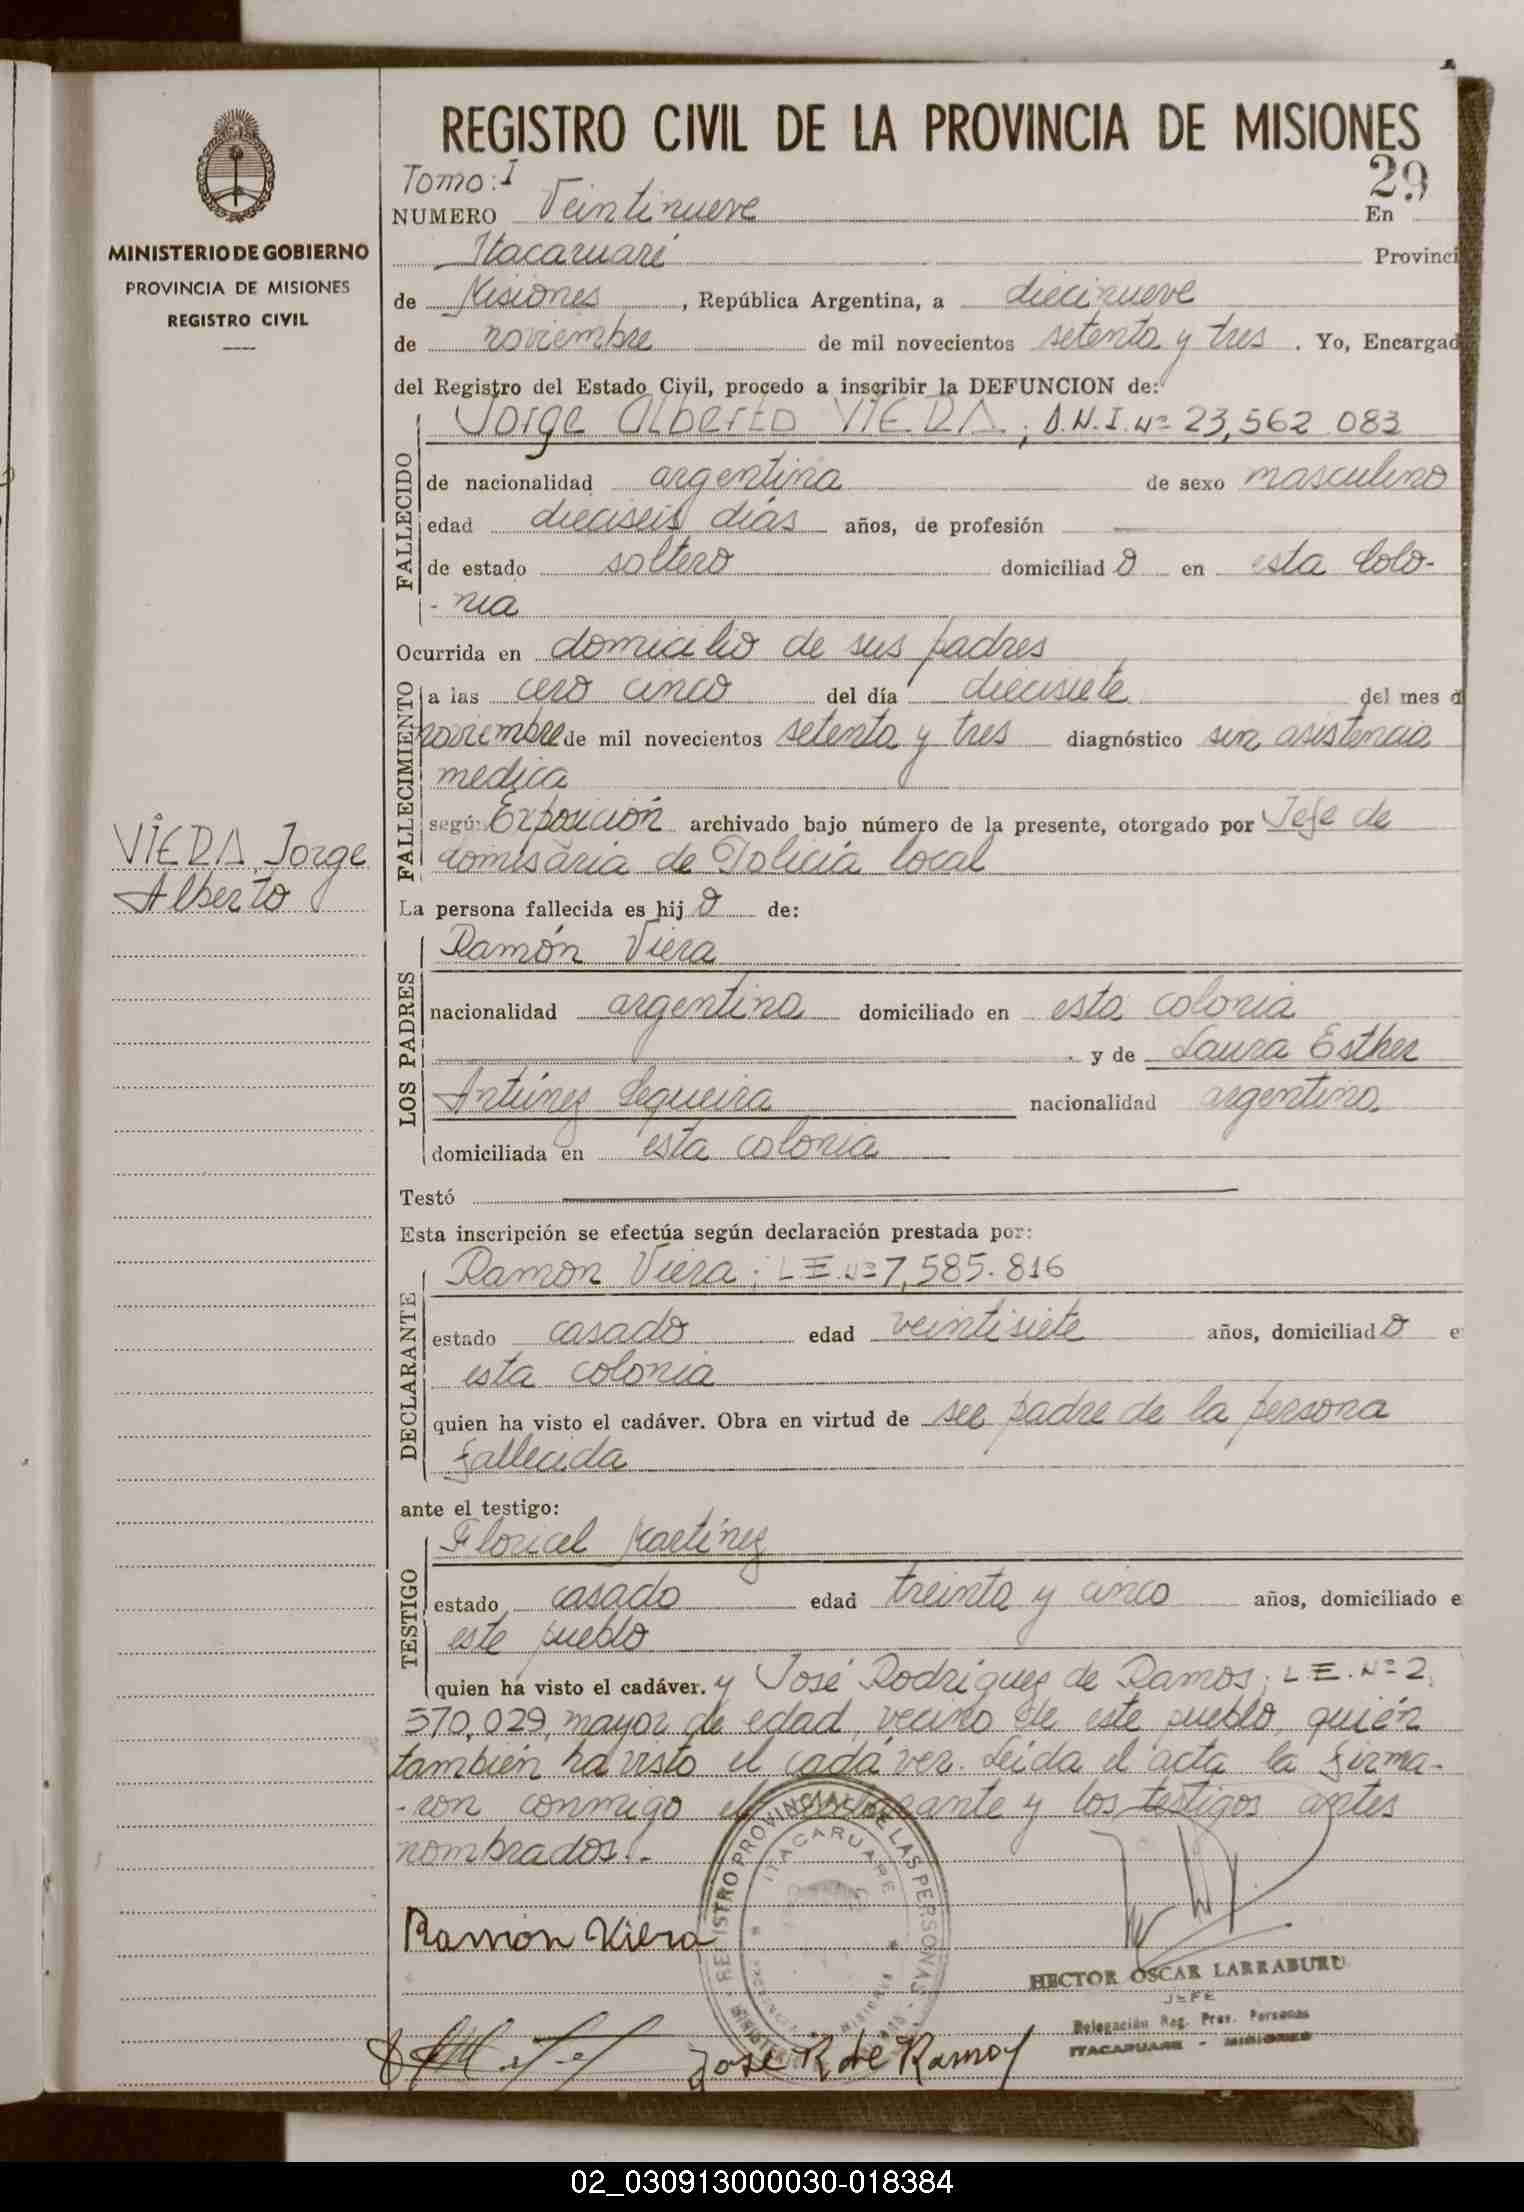 REGISTRO CIVIL DE LA PROVINCIA DE MISIONES
Tomo: I
29
NUMERO Veintinueve En
Itacaruaré Provinci
de Misiones, República Argentina, a diecinueve
de noviembre de mil novecientos setenta y tres. Yo, Encargad
del Registro del Estado Civil, procedo a inscribir la DEFUNCION de:
Jorge Alberto VIERA; D.N.I. Nº 23,562 083
FALLECIDO
de nacionalidad argentina de sexo masculino
edad dieciseis dias años, de profesión
de estado soltero domiciliad o en esta Colo-
- nia
Ocurrida en domicilio de sus padres
FALLECIMIENTO
a las cero cinco del día diecisiete del mes d
noviembre de mil novecientos setenta y tres diagnóstico sin asistencia
medica
segú: Exposición archivado bajo número de la presente, otorgado por Jefe de
Comisaria de Policia local
La persona fallecida es hij o de:
LOS PADRES
Ramón Viera
nacionalidad argentina domiciliado en esta colonia
y de Laura Esther
Antúnez Sequeira nacionalidad argentina
domiciliada en esta colonia
Testó
Esta inscripción se efectúa según declaración prestada por:
DECLARANTE
Ramon Viera; L.E. Nº 7,585.816
estado casado edad veintisiete años, domiciliad o e
esta colonia
quien ha visto el cadáver. Obra en virtud de ser padre de la persona
fallecida
ante el testigo:
TESTIGO
Floricel Martínez
estado casado edad treinta y cinco años, domiciliado e
este pueblo
quien ha visto el cadáver. y José Rodriguez de Ramos; L.E. Nº 2.
570,029, mayor de edad, vecino de este pueblo, quién
también ha visto el cadáver. Leida el acta la firma-
- ron conmigo el declarante y los testigos antes
nombrados.-
Ramón Viera
José R de Ramos
HECTOR OSCAR LARRABURU
JEFE
Delegación Reg. Prov. Personas
ITACARUARE - MISIONES
REGISTRO PROVINCIAL DE LAS PERSONAS
ITACARUARE
MINISTERIO DE GOBIERNO
PROVINCIA DE MISIONES
REGISTRO CIVIL
VIERA, Jorge
Alberto
02_030913000030-018384